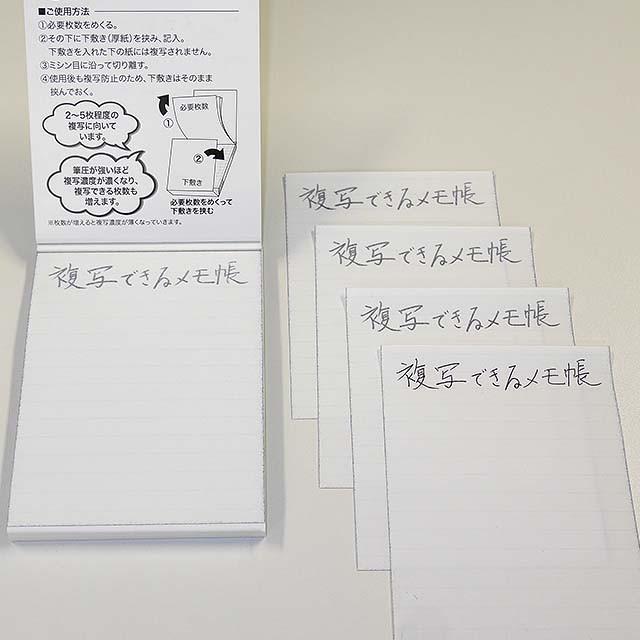 ■ご使用方法
①必要枚数をめくる。
②その下に下敷き(厚紙)を挟み、記入。
下敷きを入れた下の紙には複写されません。
③ミシン目に沿って切り離す。
④使用後も複写防止のため、下敷きはそのまま
挟んでおく。
2〜5枚程度の
複写に向いて
います。
筆圧が強いほど
複写濃度が濃くなり、
複写できる枚数も
増えます。
必要枚数
①
②
下敷き
必要枚数をめくって
下敷きを挟む
※枚数が増えると複写濃度が薄くなっていきます。
複写できるメモ帳
複写できるメモ帳
複写できるメモ帳
複写できるメモ帳
複写できるメモ帳